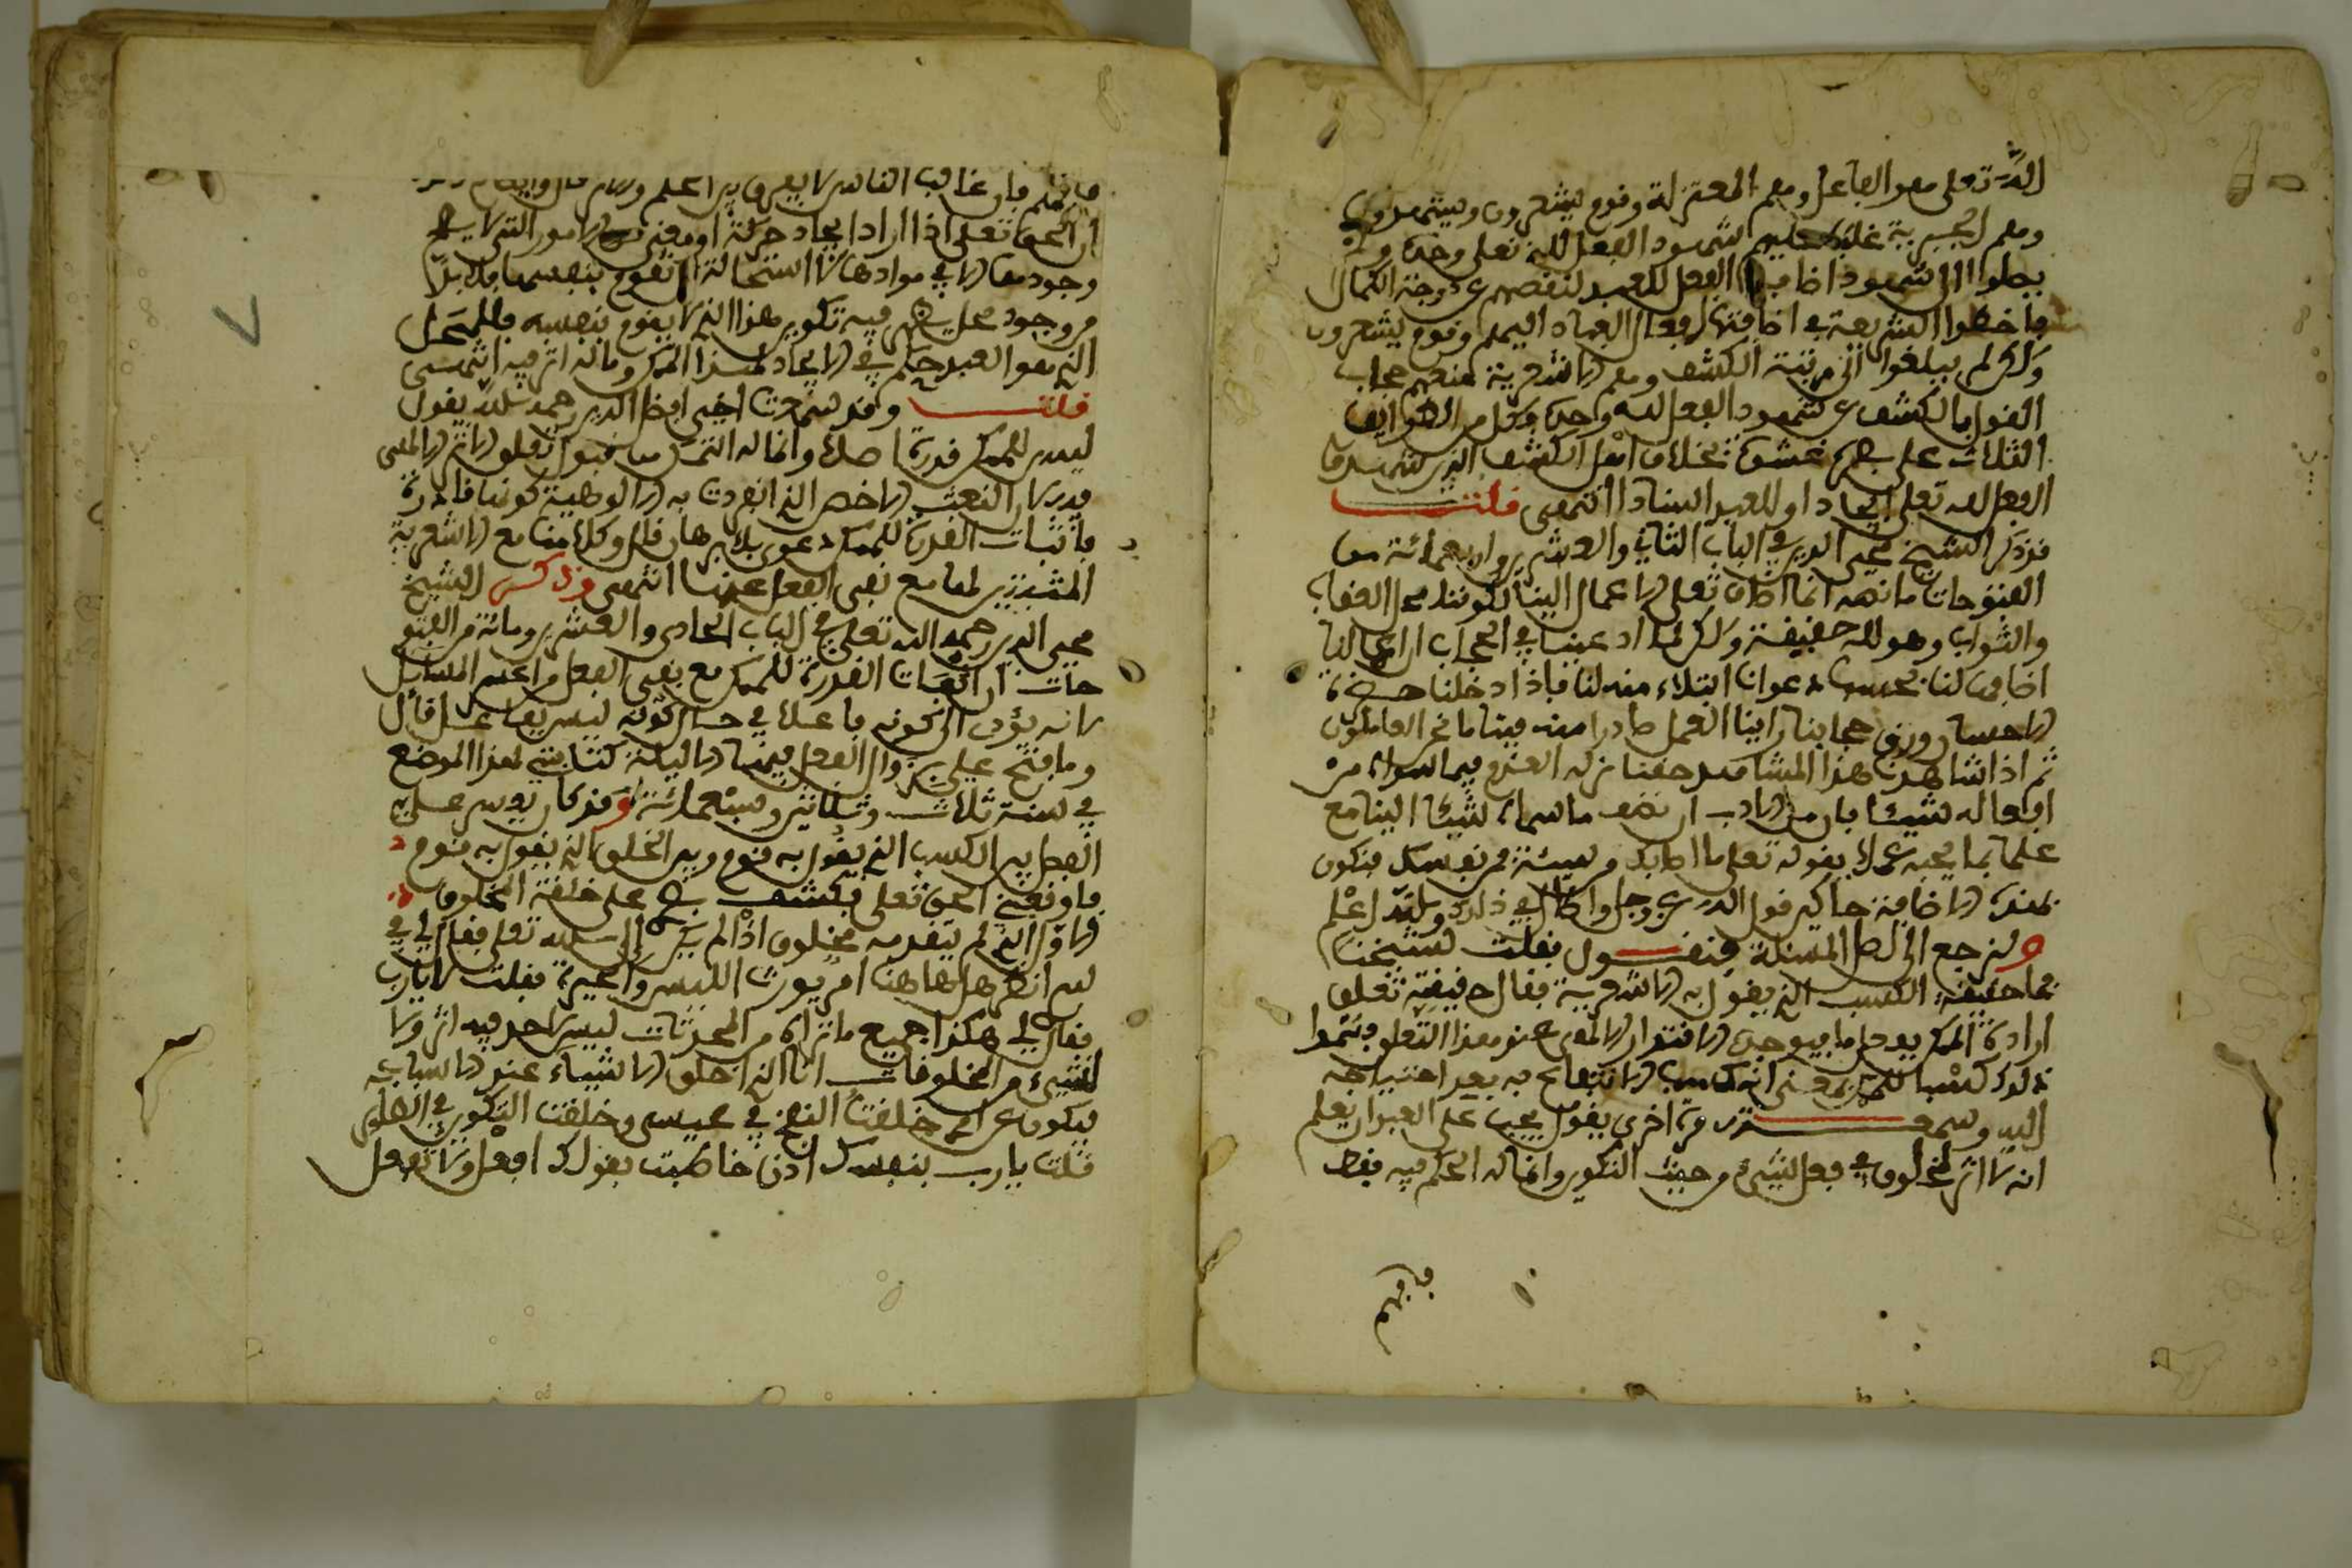 الله تعلى هو الفاعل وهم المعتزلة وقوم يشعرون ويشهدون
وهم الجبرية غلب عليهم شهود الفعل لله تعلى وحده ولم
يصلوا الى شهود اضافة الفعل للعبد لنقصهم عن درجة الكمال
فاخطوا الشريعة في اضافتها افعال العباد اليهم وقوم يشعرون
ولكن لم يبلغوا الى مرتبة الكشف وهم الاشعرية منعهم حجاب
القول بالكسب عن شهود الفعل لله وحده وكل من الطوائف
الثلاث على بصرهم غشوة بخلاف اهل الكشف الذين شهدوا
الفعل لله تعلى ايجادا وللعبد اسنادا انتهى قلت
وذكر الشيخ محي الدين في الباب الثاني والعشرين واربعمائة من
الفتوحات ما نصه انما اضاف تعلى الاعمال الينا لكوننا محل العقاب
والثواب وهو لله حقيقة ولكن لما ادعينا في الحجاب ان الاعمال لنا
اضافها لنا بحسب دعوانا ابتلاء منه لنا فاذا ادخلنا حضرة
الاحسان ورفع حجابنا راينا العمل صادرا منه فينا ما نحن العاملون
ثم اذا شاهدنا هذا المشهد خفنا من زلة القدم فيما سواه من
افعاله شيئا فان من الادب ان نضف ما سماه شيئا الينا مع
علمنا بما يحبه عملا بقوله تعلى ما اصابك من سيئة فمن نفسك فنكون
بهذه الاضافة حاكين قول الله عز وجل واطال في ذلك والله اعلم
ولنرجع الى اصل المسئلة فنقول فقلت لشيخنا
فما حقيقة الكسب الذي يقول به الاشعرية فقال حقيقته تعلق
ارادة الممكن بفعل ما فيوجده الاقتدار الالهي عند هذا التعلق فسموا
ذلك كسبا للممكن بمعنى انه كسب الانتفاع به بعد احتياجه
اليه وسمعته مرة اخرى يقول يجب على العبد ان يعلم
انه لا اثر لمخلوق في فعل شيء من حيث التكوين وانما له الحكم فيه فقط
فافهم
فافهم فان غالب الناس لا يفرق بين الحكم والاثر
ان الحق تعلى اذا اراد ايجاد حركة او معنى من الامور التي لا يصح
وجودها الا في موادها لاستحالة ان تقوم بنفسها فلا بد
من وجود محل يظهر فيه تكوين هذا الذي لا يقوم بنفسه فللمحل
الذي هو العبد حكم في الايجاد لهذا الممكن وما له اثر فيه انتهى
قلت وقد سمعت اخي افضل الدين رحمه الله يقول
ليس للممكن قدرة اصلا وانما له التمكن من قبول تعلق الاثر الالهي
فيه لان النعت الاخص الذي انفردت به الالوهية كونها قادرة
فاثبات القدرة للممكن دعوى بلا برهان قال وكلامنا مع الاشعرية
المثبتين لها مع نفي الفعل عنها انتهى وذكر الشيخ
محي الدين رحمه الله تعلى في الباب الحادي والعشرين ومائة من الفتو
حات ان اثبات القدرة للممكن مع نفي الفعل من اعسر المسائل
لانه يؤدي الى كونه فاعلا في حال كونه ليس بفاعل قال
وما فتح علي بزوال الفعل فيها الا ليلة كتابتي لهذا الموضع
في سنة ثلاث وثلاثين وستمائة وقد كان يعسر علي
الفصل بين الكسب الذي يقول به قوم وبين الخلق الذي يقول به قوم
فاوقفني الحق تعلى بكشف بصري على خلقه المخلوق
الاول الذي لم يتقدمه مخلوق اذ لم يكن الا الله تعلى فقال لي
انظر هل هاهنا امر يورث اللبس والحيرة فقلت لا يارب
فقال لي هكذا جميع ما تراه من المحدثات ليس لاحد فيه اثر ولا
شيء من المخلوقات انا الذي اخلق الاشياء عند الاسباب
فتكون عن امري خلقت النفخ في عيسى وخلقت التكوين في الطائر
قلت يارب بنفسك اذن خاطبت بقولك افعل ولا تفعل